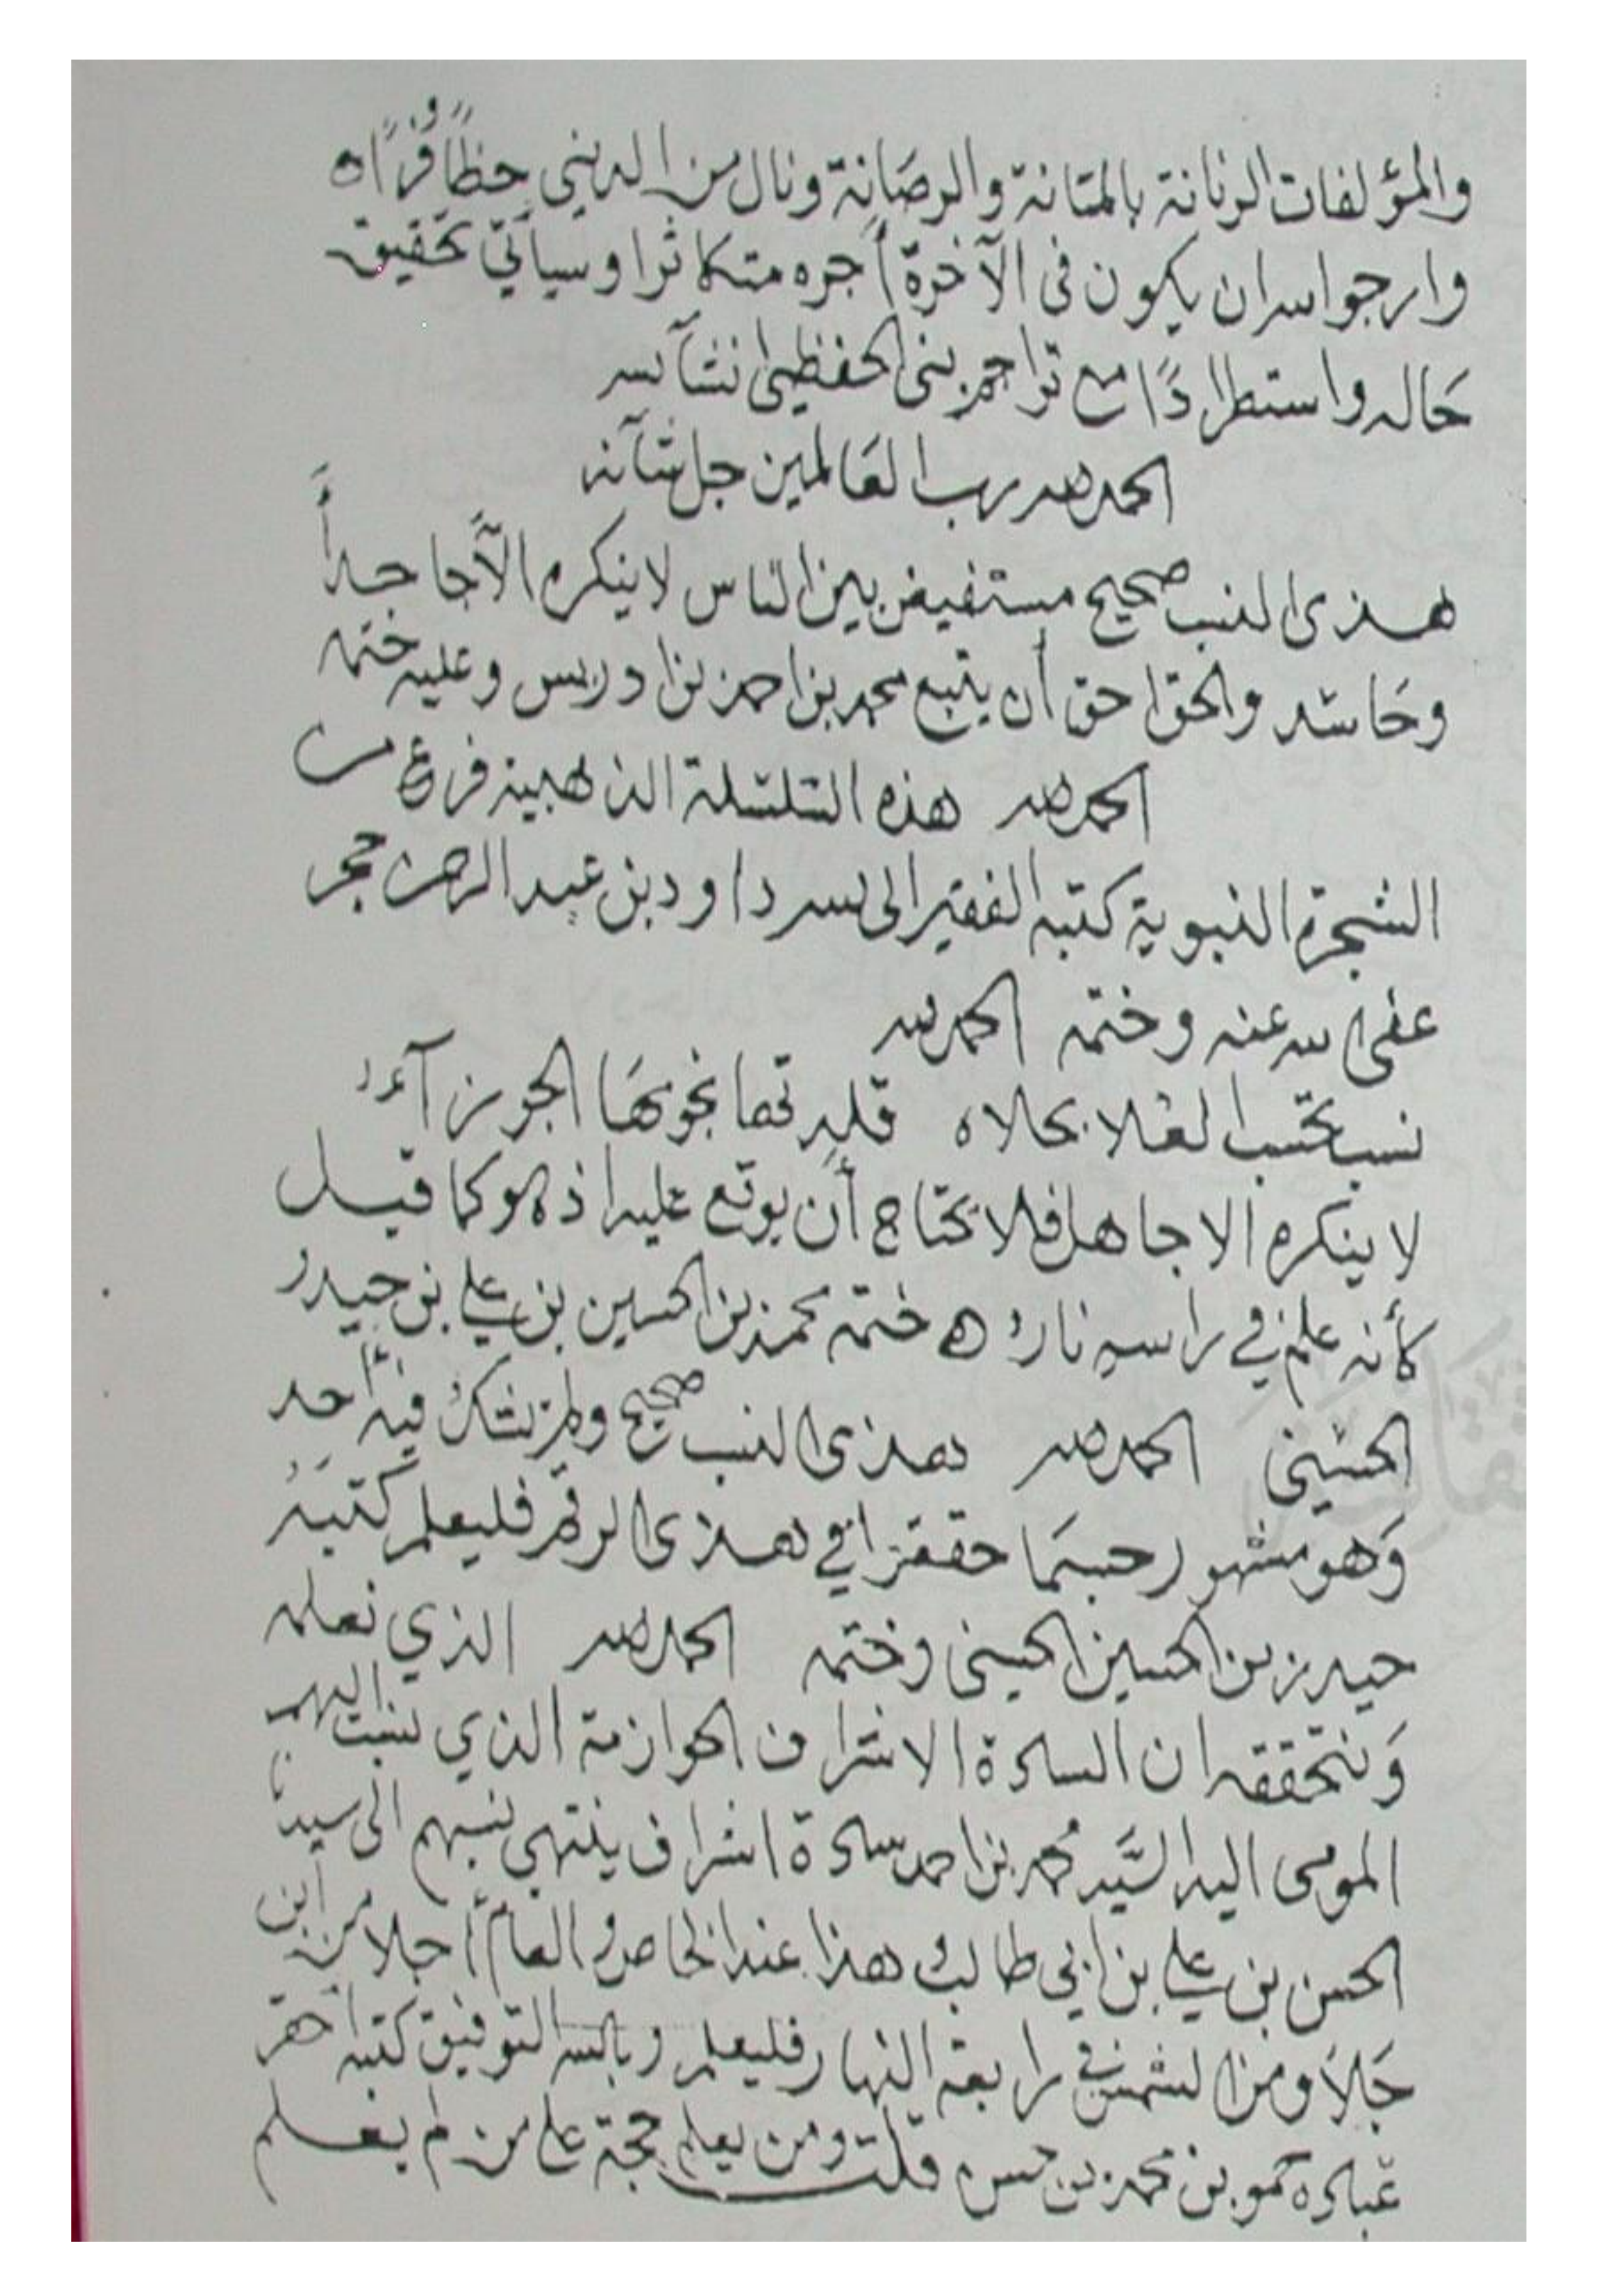 والمؤلفات الرنانة بالمتانة والرصَانة ونال من الدينى حظاً وفرًا ه
وارجوا الله ان يكون فى الآخرة أجره متكاثرا وسيأتي تحقيق
حَاله واستطرادًا مع تراجم بنى الحفظى انشآ الله
الحمد لله رب العَالمين جل شآنه
هذى النسب صحيح مستفيض بين الناس لا ينكره الآ جاحداً
وحَاسد والحق احق أن يتبع محمد بن احمد بن ادريس وعليه ختمه
الحمد لله هذه السلسلة الذهبية فرع من
الشجرة النبوية كتبه الفقير الى الله داود بن عبد الرحمن حجر
عفى الله عنه وختمه الحمد لله
نسب تحسب العُلا بحلاه قلدتها نجومَها الجوزآءُ
لا ينكره الا جاهل فلا يحتاج أن يوقع عليه اذ هو كما قيل
كأنه علم في راسه نارُ ه ختمه محمد بن الحسين بن علي بن حيدر
الحسَينى الحمد لله هذى النسب صحيح ولم يشك فيه أحد
وَهو مشهور حسبمَا حقق في هذى الرقم فليعلم كتبَهُ
حيدر بن الحسين الحسينى وختمه الحمد لله الذي نعلمه
وَنتحققه ان السادة الاشراف الحوازمة الذي ينسب اليهم
المومى اليه السَّيد محمد بن احمد سادة اشراف ينتهى نسبهم الى سيدنا
الحسن بن علي بن ابي طالب هذا عند الخاص والعام أجلا من ابن
جَلا ومن الشمس في رابعة النهار فليعلم وبالله التوفيق كتبه احقر
عباده حمود بن محمد بن حسن قلت ومن يعلم حجة على من لم يعلم